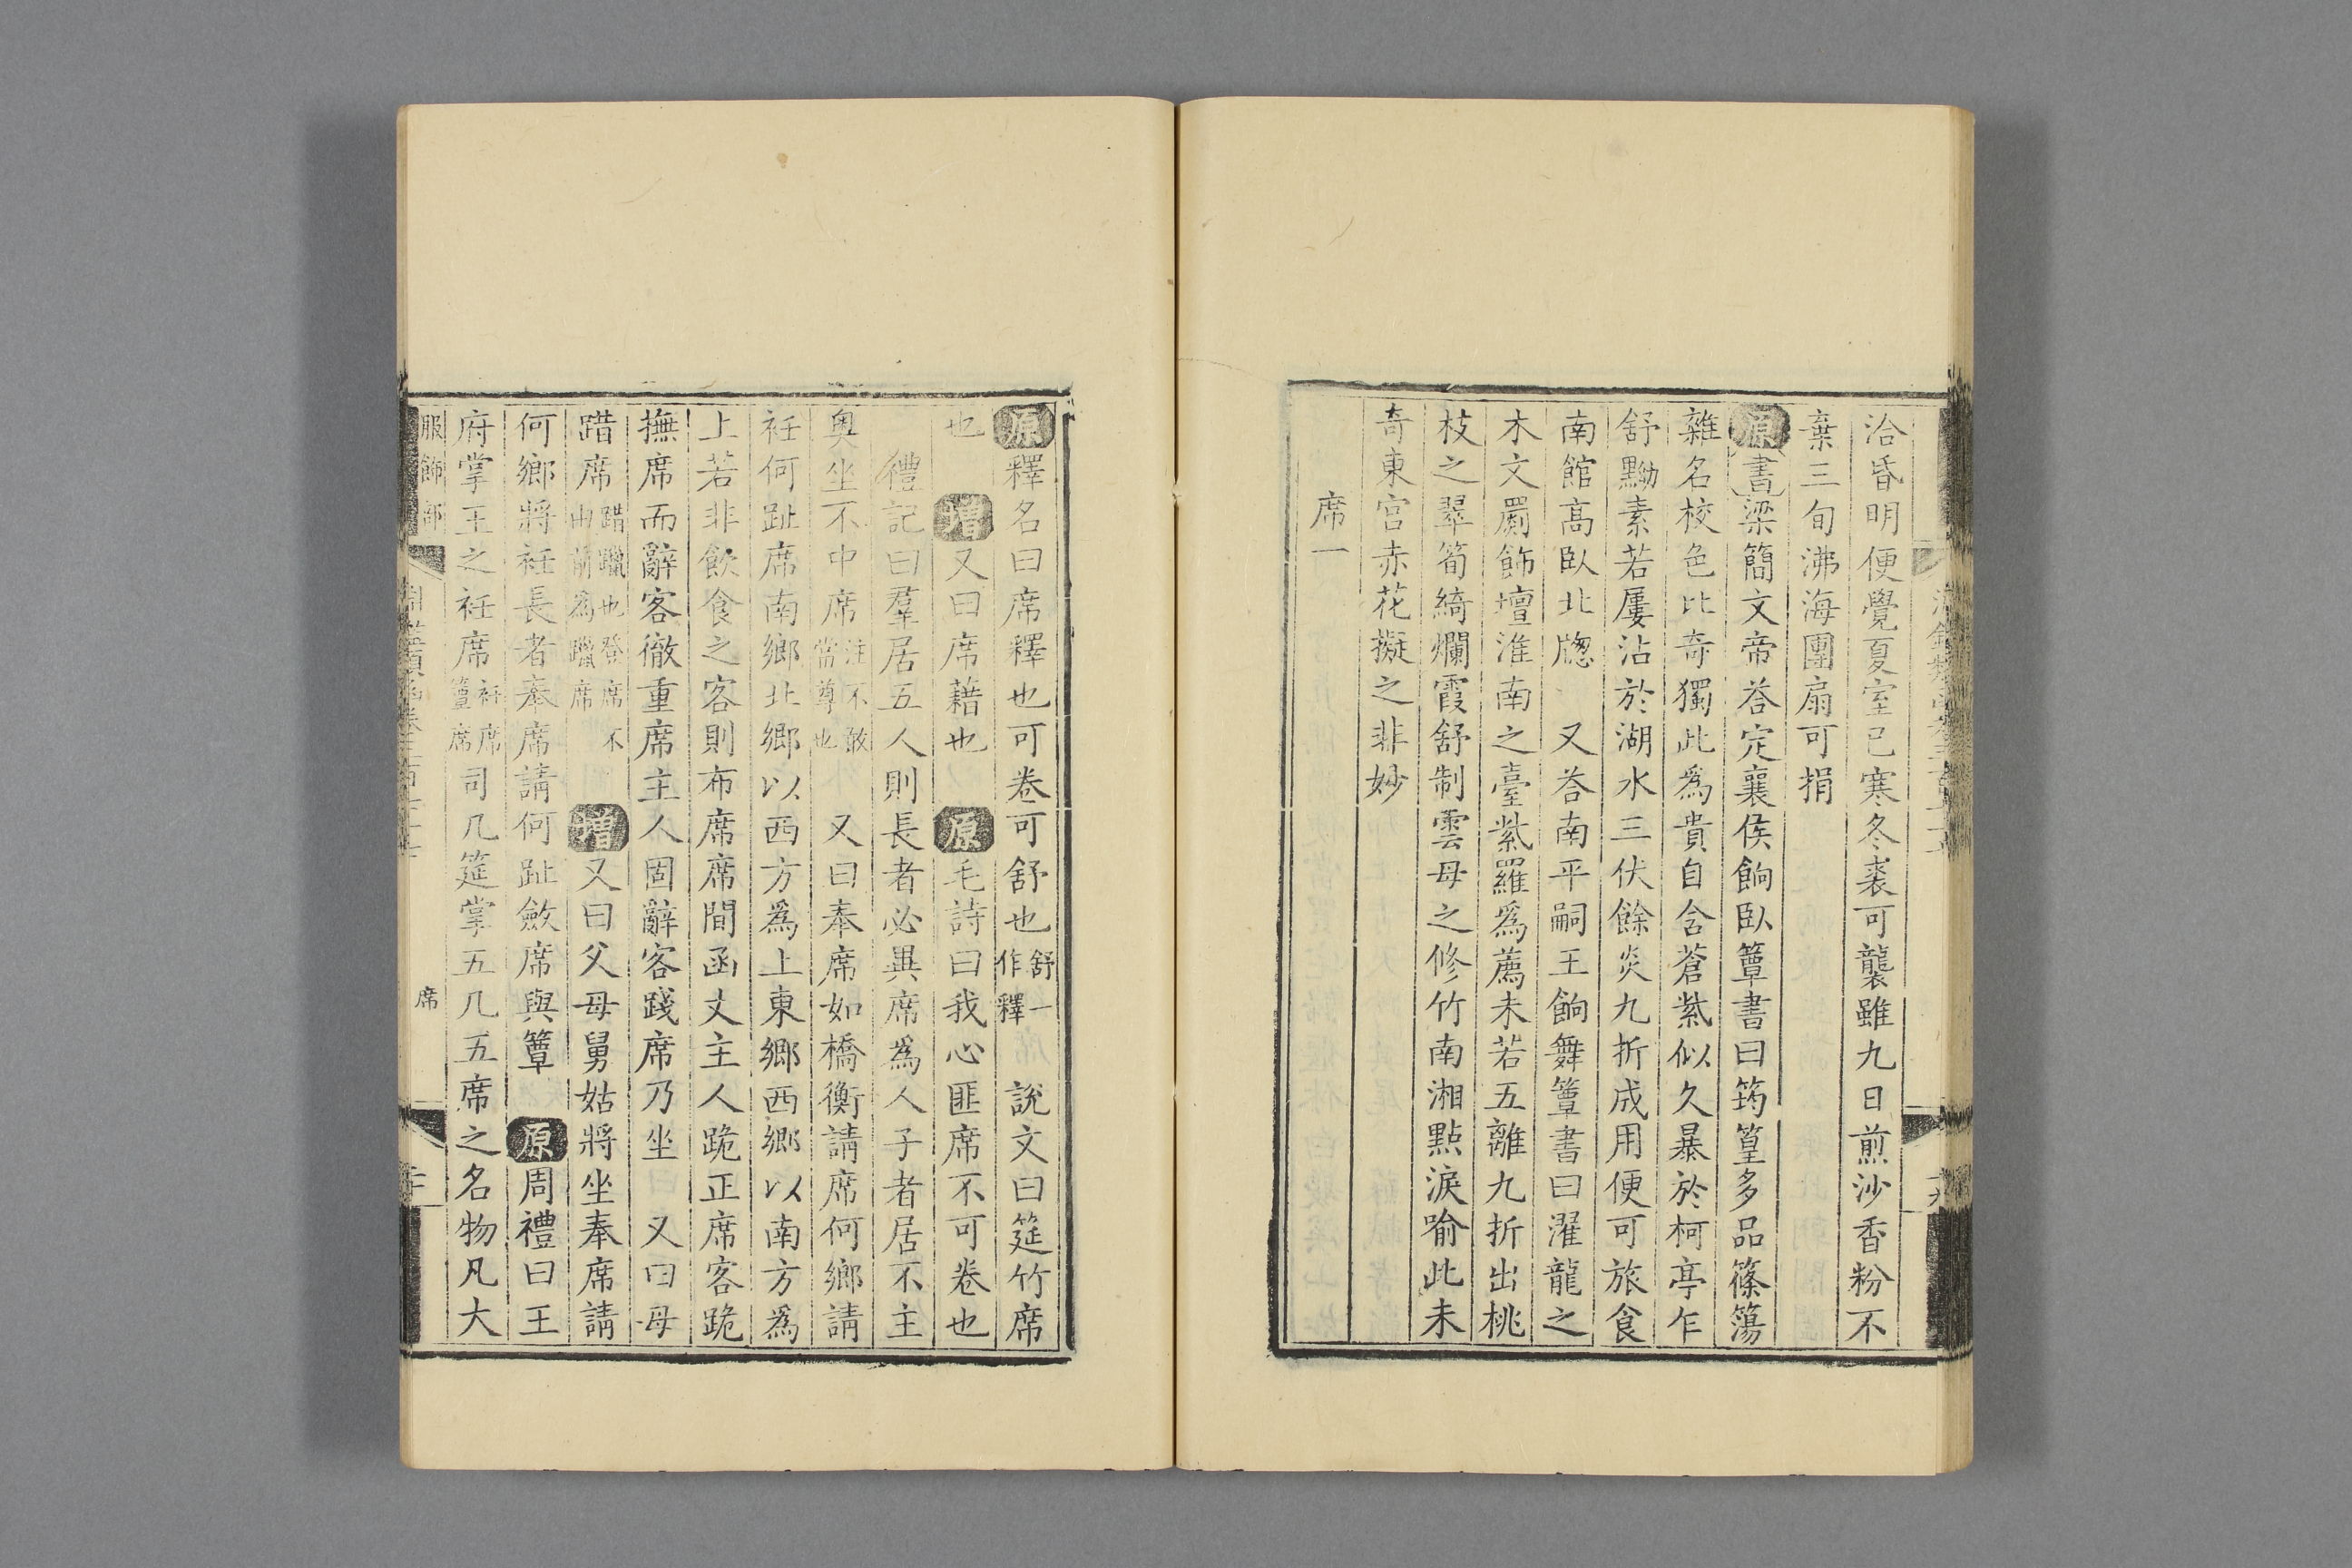 洽昏明便覺夏室已寒冬裘可襲雖九日煎沙香粉不
棄三旬沸海團扇可捐
原書梁簡文帝荅定襄侯餉臥簟書曰筠篁多品篠簜
雜名校色比奇獨此爲貴自含蒼紫似久暴於柯亭乍
舒黝素若屢沾於湖水三伏餘炎九折成用便可旅食
南館高臥北牎　又荅南平嗣王餉舞簟書曰濯龍之
木文罽飾壇淮南之臺紫羅爲薦未若五離九折出桃
枝之翠筍綺爛霞舒制雲母之修竹南湘點淚喻此未
奇東宮赤花擬之非妙
席一
原釋名曰席釋也可卷可舒也舒一作釋　說文曰筵竹席
也　增又曰席藉也　原毛詩曰我心匪席不可卷也
禮記曰羣居五人則長者必異席爲人子者居不主
奧坐不中席注不敢當尊也　又曰奉席如橋衡請席何鄉請
衽何趾席南鄉北鄉以西方爲上東鄉西鄉以南方爲
上若非飲食之客則布席席間函丈主人跪正席客跪
撫席而辭客徹重席主人固辭客踐席乃坐　又曰毋
踖席踖躐也登席不由前爲躐席　增又曰父母舅姑將坐奉席請
何鄉將衽長者奉席請何趾斂席與簟　原周禮曰王
府掌王之衽席衽席簟席　司几筵掌五几五席之名物凡大
服飾部
席